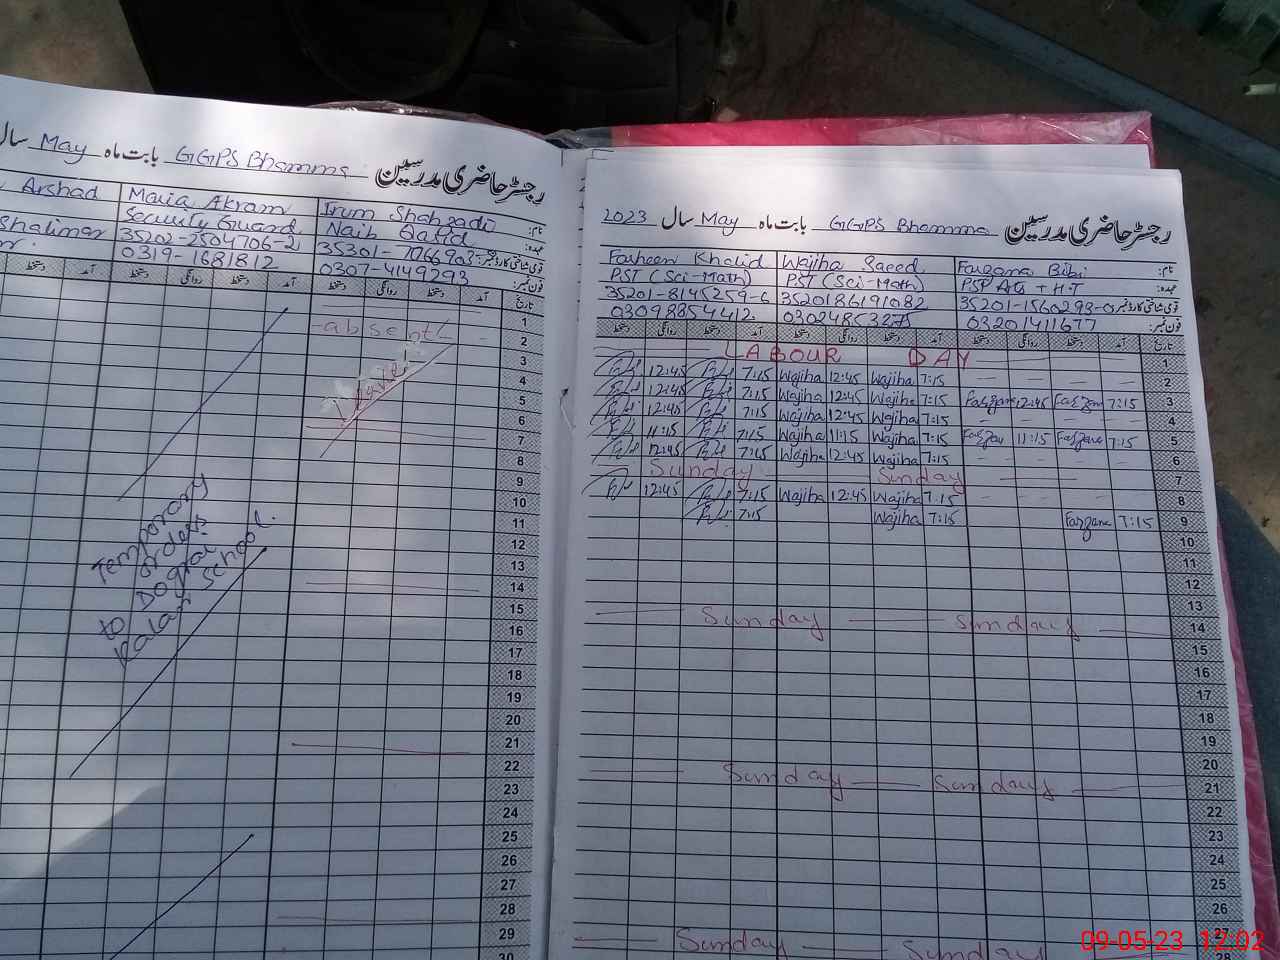 رجسٹر حاضری مدرسین GGPS Bhamma بابت ماہ May سال
نام: Irum Shahzadi Maria Akram Arshad
عہدہ: Naib Qasid Security Guard Shalimar
قومی شناختی کارڈ نمبر: 35202-2504706-2
فون نمبر: 0307-4149293 0319-1681812
تاریخ آمد دستخط روانگی دستخط آمد دستخط روانگی دستخط آمد
1
2 absent
3
4
5 Leave
6
7
8
9
10
11
12
13
14
15
16
17
18
19
20
21
22
23
24
25
26
27
28
29
30
Temporary
orders
to Dograi
Kalan School.
رجسٹر حاضری مدرسین GGPS Bhamma بابت ماہ May سال 2023
نام: Farzana Bibi Wajiha Saeed Farheen Khalid
عہدہ: PST AG + H.T PST (Sci-Math) PST (Sci-Math)
قومی شناختی کارڈ نمبر: 35201-1560293-0 3520186191082 35201-8145259-6
فون نمبر: 03201411677 03098854412
تاریخ آمد دستخط روانگی دستخط آمد دستخط روانگی دستخط آمد دستخط روانگی دستخط
1 LABOUR DAY
2 7:15 Wajiha 12:45 Wajiha 7:15 12:45
3 7:15 Farzana 12:45 Farzana 7:15 Wajiha 12:45 Wajiha 7:15 12:45
4 7:15 Wajiha 12:45 Wajiha 7:15 12:45
5 7:15 Farzana 11:15 Farzana 7:15 Wajiha 11:15 Wajiha 7:15 11:15
6 7:15 Wajiha 12:45 Wajiha 7:15 12:45
7 Sunday Sunday
8 7:15 Wajiha 12:45 Wajiha 7:15 12:45
9 7:15 Farzana 7:15 Wajiha 7:15
10
11
12
13
14 Sunday Sunday
15
16
17
18
19
20
21 Sunday Sunday
22
23
24
25
26
27
28 Sunday Sunday
09-05-23 12:02